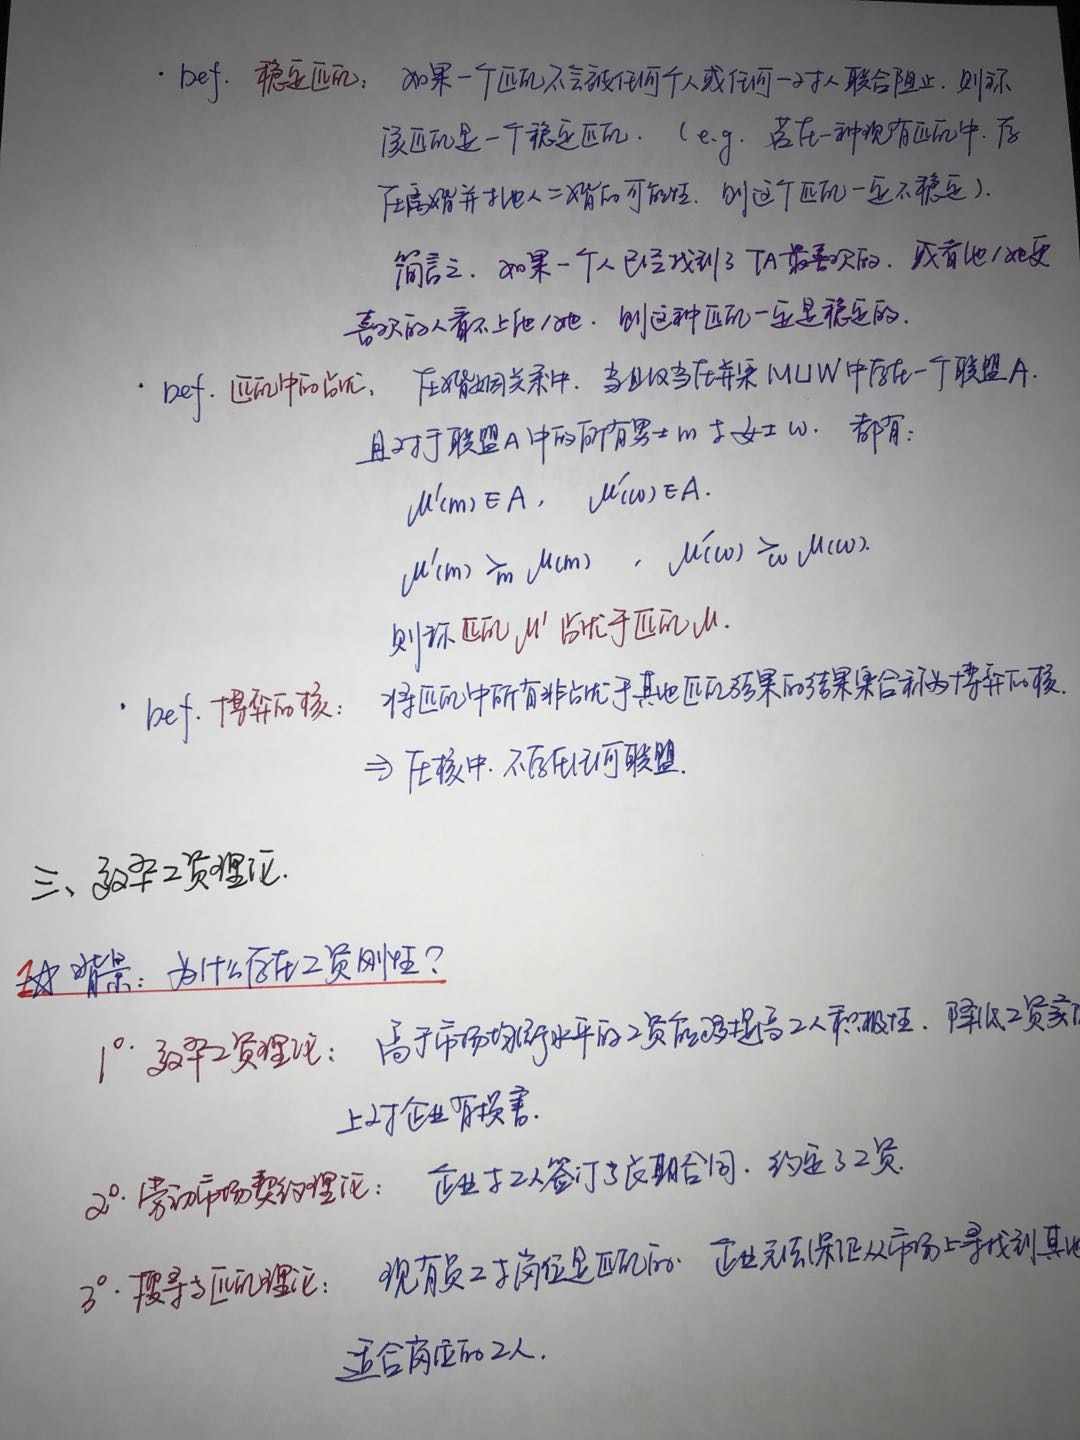 · Def. 稳定匹配: 如果一个匹配不会被任何个人或任何一对人联合阻止. 则称
该匹配是一个稳定匹配. (e.g. 若在一种现有匹配中. 存
在离婚并与他人二婚的可能性. 则这个匹配一定不稳定).
简言之. 如果一个人已经找到了TA最喜欢的. 或者他/她更
喜欢的人看不上他/她. 则这种匹配一定是稳定的.
· Def. 匹配中的占优: 在婚姻关系中. 当且仅当在并集 M∪W 中存在一个联盟A.
且对于联盟A中的所有男士m与女士w. 都有:
μ'(m)∈A, μ'(w)∈A.
μ'(m) ≥m μ(m) , μ'(w) ≥w μ(w).
则称匹配μ'占优于匹配μ.
· Def. 博弈的核: 将匹配中所有非占优于其他匹配结果的结果集合称为博弈的核.
⇒ 在核中. 不存在任何联盟.
三、效率工资理论.
1☆ 背景: 为什么存在工资刚性?
1°. 效率工资理论: 高于市场均衡水平的工资能够提高工人积极性. 降低工资实际
上对企业有损害.
2°. 劳动市场契约理论: 企业与工人签订了长期合同. 约定了工资.
3°. 搜寻与匹配理论: 现有员工与岗位是匹配的. 企业无法保证从市场上寻找到其他
适合岗位的工人.